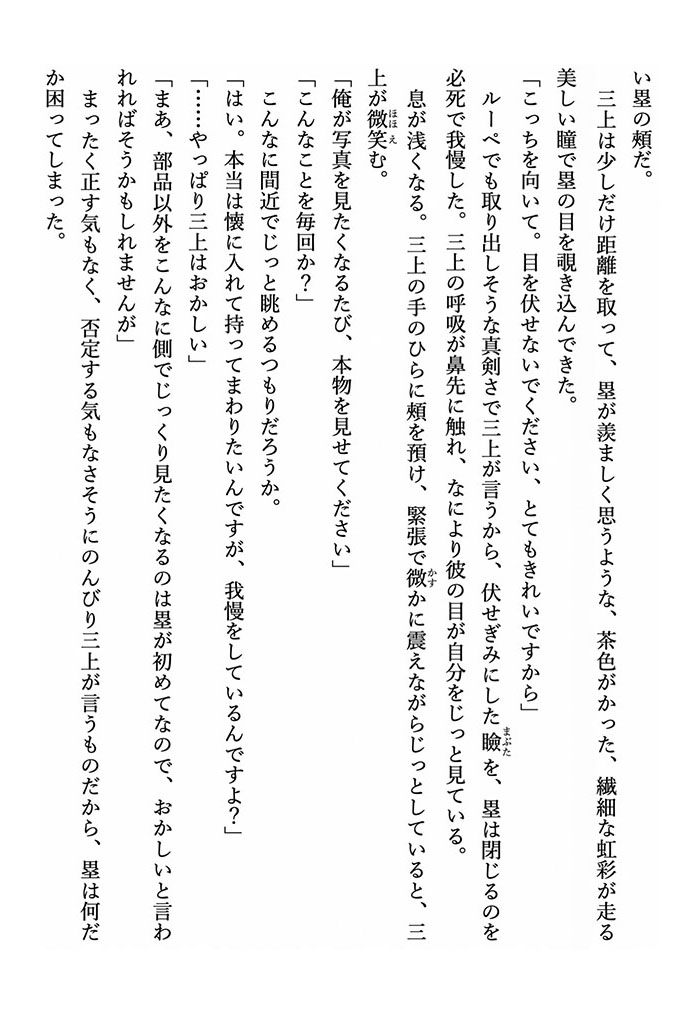 い塁の頰だ。
　三上は少しだけ距離を取って、塁が羨ましく思うような、茶色がかった、繊細な虹彩が走る
美しい瞳で塁の目を覗き込んできた。
「こっちを向いて。目を伏せないでください、とてもきれいですから」
　ルーペでも取り出しそうな真剣さで三上が言うから、伏せぎみにした瞼を、塁は閉じるのを
必死で我慢した。三上の呼吸が鼻先に触れ、なにより彼の目が自分をじっと見ている。
　息が浅くなる。三上の手のひらに頰を預け、緊張で微かに震えながらじっとしていると、三
上が微笑む。
「俺が写真を見たくなるたび、本物を見せてください」
「こんなことを毎回か？」
　こんなに間近でじっと眺めるつもりだろうか。
「はい。本当は懐に入れて持ってまわりたいんですが、我慢をしているんですよ？」
「……やっぱり三上はおかしい」
「まあ、部品以外をこんなに側でじっくり見たくなるのは塁が初めてなので、おかしいと言わ
れればそうかもしれませんが」
　まったく正す気もなく、否定する気もなさそうにのんびり三上が言うものだから、塁は何だ
か困ってしまった。